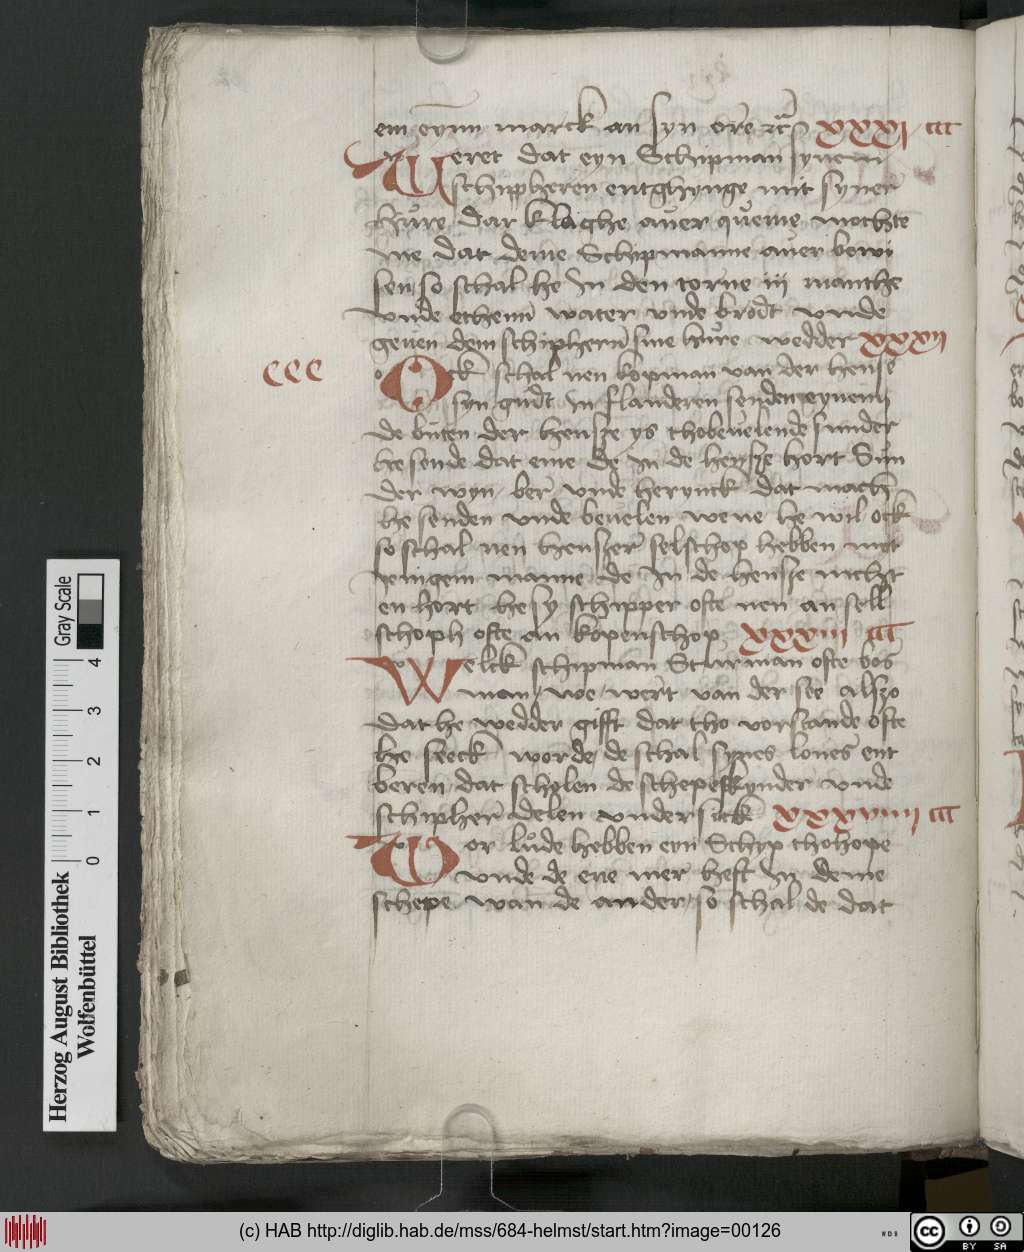 em eynn marck an syn ere etc xxxi ccc
Weret dat eyn Schipman synem
schippheren entghynge mit syner
hure dar klaghe auer queme mochte
me dat deme Schipmanne auer bewi
sen so schal he In den torne iij manthe
vnde ethenn water vnde brodt vnde
geuen dem schiphern sine hure wedder xxxii
ccc
Ock schal nen kopman van der hense
syn gudt In flanderen senden eynem
de buten der hensze ys tho beuelende sunder
he sende dat eme de In de hensze hort Sun
der wyn ber vnde herynck dat mach
he senden vnde beuelen weme he wil ock
so schal nen henszer selschop hebben met
yenigem manne de In de hensse nicht
en hort he sy schipper ofte nen an sell
schoph ofte em kopenschop xxxiii ccc
Welck schipman Sturman ofte bos
man we wert van der see alszo
dat he wedder gifft dat tho vorstande ofte
he seeck worde de schal synes lones ent
beren dat scholen de schepeskynder vnde
schipher delen vnder sick ccc
Wor lude hebben eyn Schyp tho hope
vnde de ene mer heft In deme
schepe wan de ander so schal de dat
Herzog August Bibliothek
Wolfenbüttel
Gray Scale
0 1 2 3 4
(c) HAB http://diglib.hab.de/mss/684-helmst/start.htm?image=00126
WDB
cc BY SA